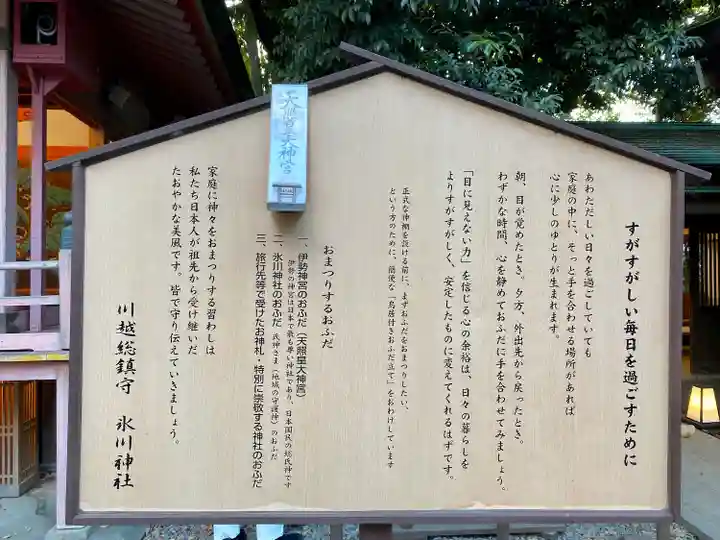 すがすがしい毎日を過ごすために
あわただしい日々を過ごしていても
家庭の中に、そっと手を合わせる場所があれば
心に少しのゆとりが生まれます。
朝、目が覚めたとき。夕方、外出先から戻ったとき。
わずかな時間、心を静めておふだに手を合わせてみましょう。
「目に見えない力」を信じる心の余裕は、日々の暮らしを
よりすがすがしく、安定したものに変えてくれるはずです。
正式な神棚を設ける前に、まずおふだをおまつりしたい、
という方のために、簡便な「鳥居付きおふだ立て」をおわけしています
おまつりするおふだ
一、伊勢神宮のおふだ(天照皇大神宮)
伊勢の神宮は日本で最も尊い神社であり、日本国民の総氏神です
二、氷川神社のおふだ 氏神さま(地域の守護神)のおふだ
三、旅行先等で受けたお神札・特別に崇敬する神社のおふだ
天照皇大神宮
家庭に神々をおまつりする習わしは
私たち日本人が祖先から受け継いだ
たおやかな美風です。皆で守り伝えていきましょう。
川越総鎮守 氷川神社